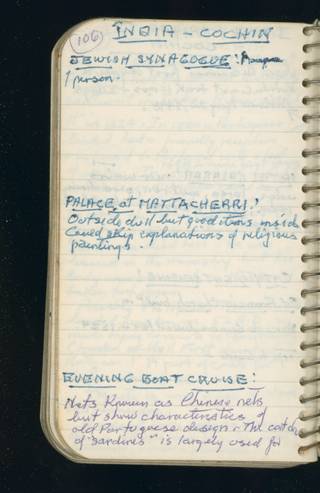 106
INDIA - COCHIN
JEWISH SYNAGOGUE:
1 person.
PALACE at MATTACHERRI:
Outside dull but good items inside
Could skip explanations of religious
paintings.
EVENING BOAT CRUISE:
Nets Known as Chinese nets
but show characteristics of
old Portuguese design. The catch
of "sardines" is largely used for